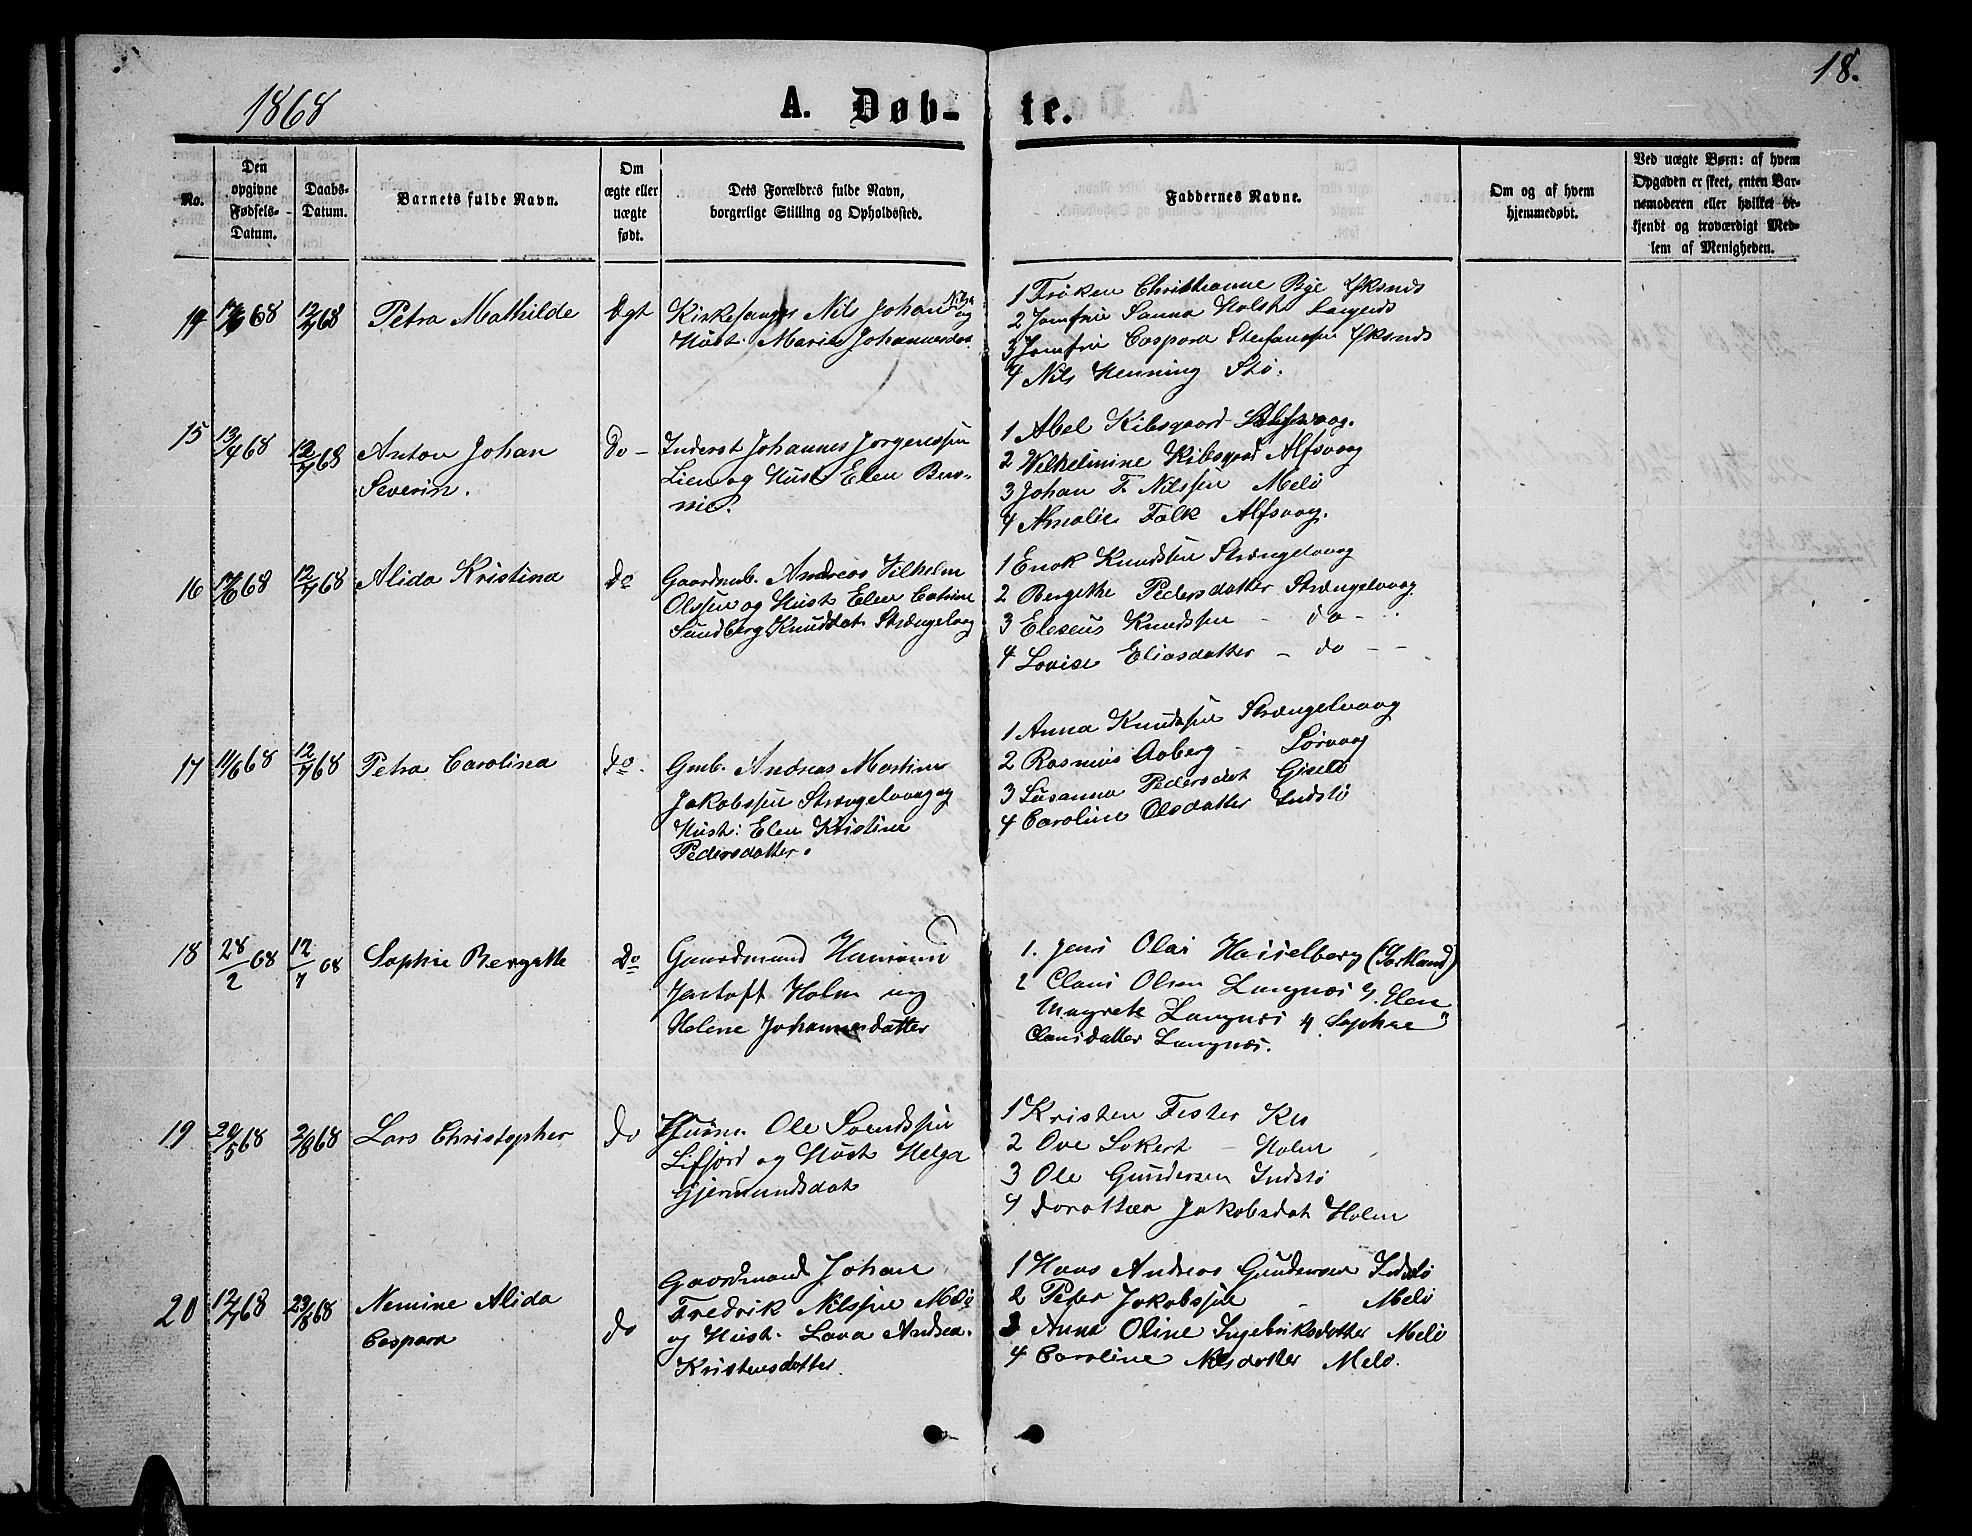 18.
1868
A. Døb-
te.
No.
Den
opgivne
Fødsels-
Datum.
Daabs-
Datum.
Barnets fulde Navn.
Om
ægte eller
uægte
født.
Dets Forældres fulde Navn,
borgerlige Stilling og Opholdssted.
Faddernes Navne.
Om og af hvem
hjemmedøbt.
Ved uægte Børn: af hvem
Opgaven er skeet, enten Bar-
nemoderen eller hvilket be-
kjendt og troværdigt Med-
lem af Menigheden.
14 68 12/7 68 Petra Mathilde Ægt Kirkesanger Nils Johan og
Hust. Marit Johannesdat.
1 Frøken Christianne Bye Øksnæs
2 Jomfru Sanna Holst
3 Jomfru Caspara Øksnæs
4 Nils Henning Stø.
15 13/4 68 12/7 68 Anton Johan
Severin.
Do – Inderst Johannes Jørgenssen
Lien og Hust Elen
1 Abel Kibsgaard Alfsvaag.
2 Vilhelmine Kibsgaard Alfsvaag
3 Johan F. Nilssen Melø
4 Amalie Falk Alfsvaag.
16 17/6 68 12/7 68 Alida Kristina do Gaardmb. Andreas Vilhelm
Olssen og Hust Elen Catrine
Sundberg Knudsdat. Strængelvaag
1 Enok Knudssen Strængelvaag
2 Bergitte Pedersdatter Strængelvaag
3 Eleseus Knudssen – do –
4 Lovise Eliasdatter – do – –
17 11/6 68 12/7 68 Petra Carolina do. Gmb. Andreas Martin
Jakobssen Strængelvaag og
Hust: Elen Kristine
Pedersdatter.
1 Anna Knudssen Strængelvaag
2 Rasmus Aaberg – Sørvaag
3 Susanna Pedersdat Gisslø
4 Caroline Olsdatter Indstø
18 28/2 68 12/7 68 Sophie Bergitte Do Gaardmand
Jentoft Holm og
Helene Johannesdatter
1. Jens Olai Hasselberg (Sortland)
2 Claus Olsen Langnæs 3. Elen
Magrete Langnæs 4. Sophie
Clausdatter Langnæs.
19 20/5 68 2/8 68 Lars Christopher do Husm. Ole Svendssen
Lifjord og Hust Helga
Gjermundsdat
1 Kristen Fester
2 Ove Sokert – Holm
3 Ole Gundersen Indstø
4 Dorothea Jakobsdat Holm
20 12/7 68 23/8 68 Nemine Alida
Caspara
do Gaardmand Johan
Fredrik Nilssen Melø
og Hust. Lava Andrea
Kristensdatter.
1 Hans Andreas Gundersen Indstø
2 Peter Jakobssen – Melø
3 Anna Oline Ingebriksdatter Melø
4 Caroline Nilsdatter Melø.